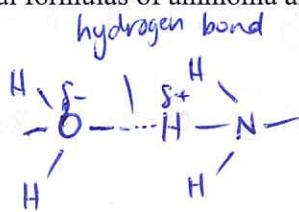 formulas of ammonia
hydrogen bond
H δ- δ+ H
O H N
H H